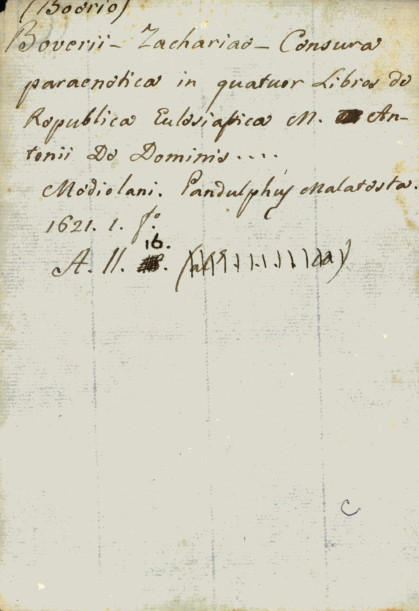 (Boerio)
Boverii - Zachariae - Censura
paraenetica in quatuor Libros de
Republica Eclesiastica M. An-
tonii De Dominis....
Mediolani. Pandulphus Malatesta.
1621. 1. fº
16.
A. 11.
C